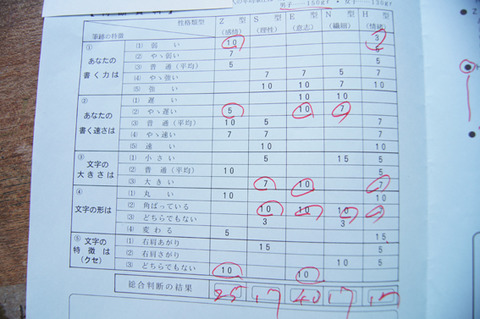 男子―150gr ・女子―130gr
性格類型 Z 型 S 型 E 型 N 型 H 型
筆跡の特徴 (感情) (理性) (意志) (繊細) (情緒)
① (1) 弱い 10 3
あなたの (2) やゝ弱い 7
書く力は (3) 普通（平均） 5 5
(4) やゝ強い 7 7 5 7
(5) 強い 10 10 7 10
② (1) 遅い 10 10
あなたの (2) やゝ遅い 5 10 7
書く速さは (3) 普通（平均） 10 5 7
(4) やゝ速い 7 7 7
(5) 速い 10 10
③ 文字の (1) 小さい 5 15 5
大きさは (2) 普通（平均） 10 5
(3) 大きい 7 10 7
④ (1) 丸い 10
文字の形は (2) 角ばっている 10 10 10
(3) どちらでもない 3 3
(4) 変わる 5 15
⑤ 文字の (1) 右肩あがり 15 5
特徴は (2) 右肩さがり 10 5
(クセ) (3) どちらでもない 10 10
総合判断の結果 25 17 40 17 17